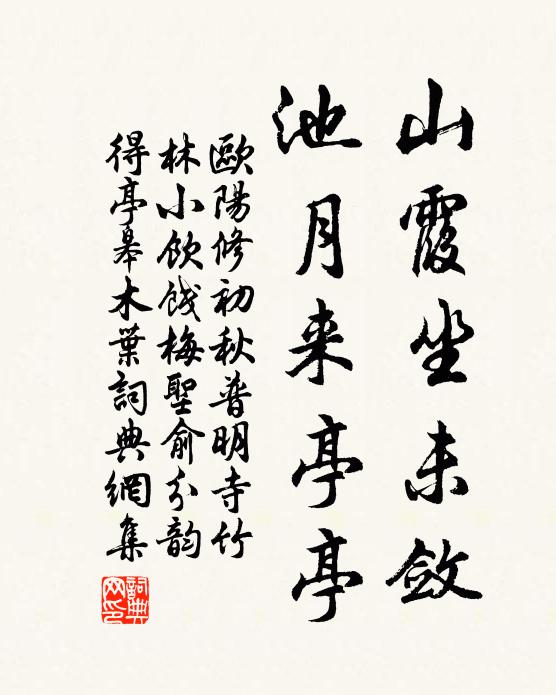 山霞坐未斂
池月来亭亭
歐陽修初秋普明寺竹
林小飲餞梅聖俞分韵
得亭皋木葉詞典網集
詞典
网印